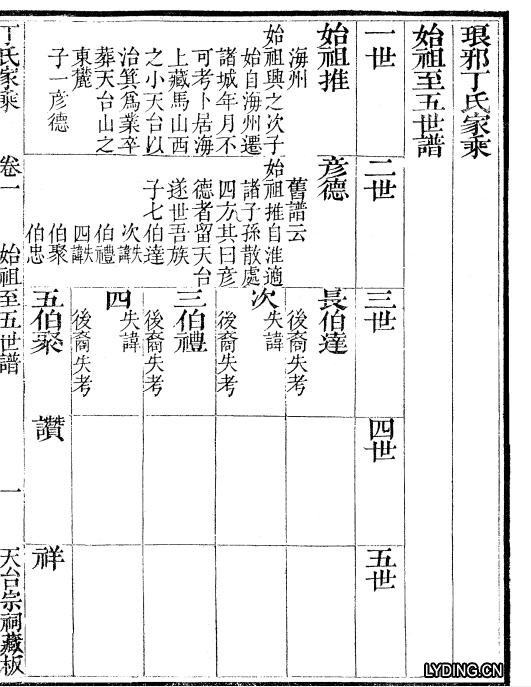 琅邪丁氏家乘
始祖至五世譜
一世
二世
三世
四世
五世
始祖推
海州
始祖興之次子
始自海州遷
諸城年月不
可考卜居海
上藏馬山西
之小天台以
治箕爲業卒
葬天台山之
東麓
子一彥德
彥德
舊譜云
始祖推自淮適
諸子孫散處
四方其曰彥
德者留天台
遂世吾族
子七伯達
次諱失
伯禮
四諱失
伯聚
伯忠
長伯達
後裔失考
次
失諱
後裔失考
三伯禮
後裔失考
四
失諱
後裔失考
五伯聚
讚
祥
丁氏家乘
卷一
始祖至五世譜
一
天台宗祠藏板
LYDING.CN